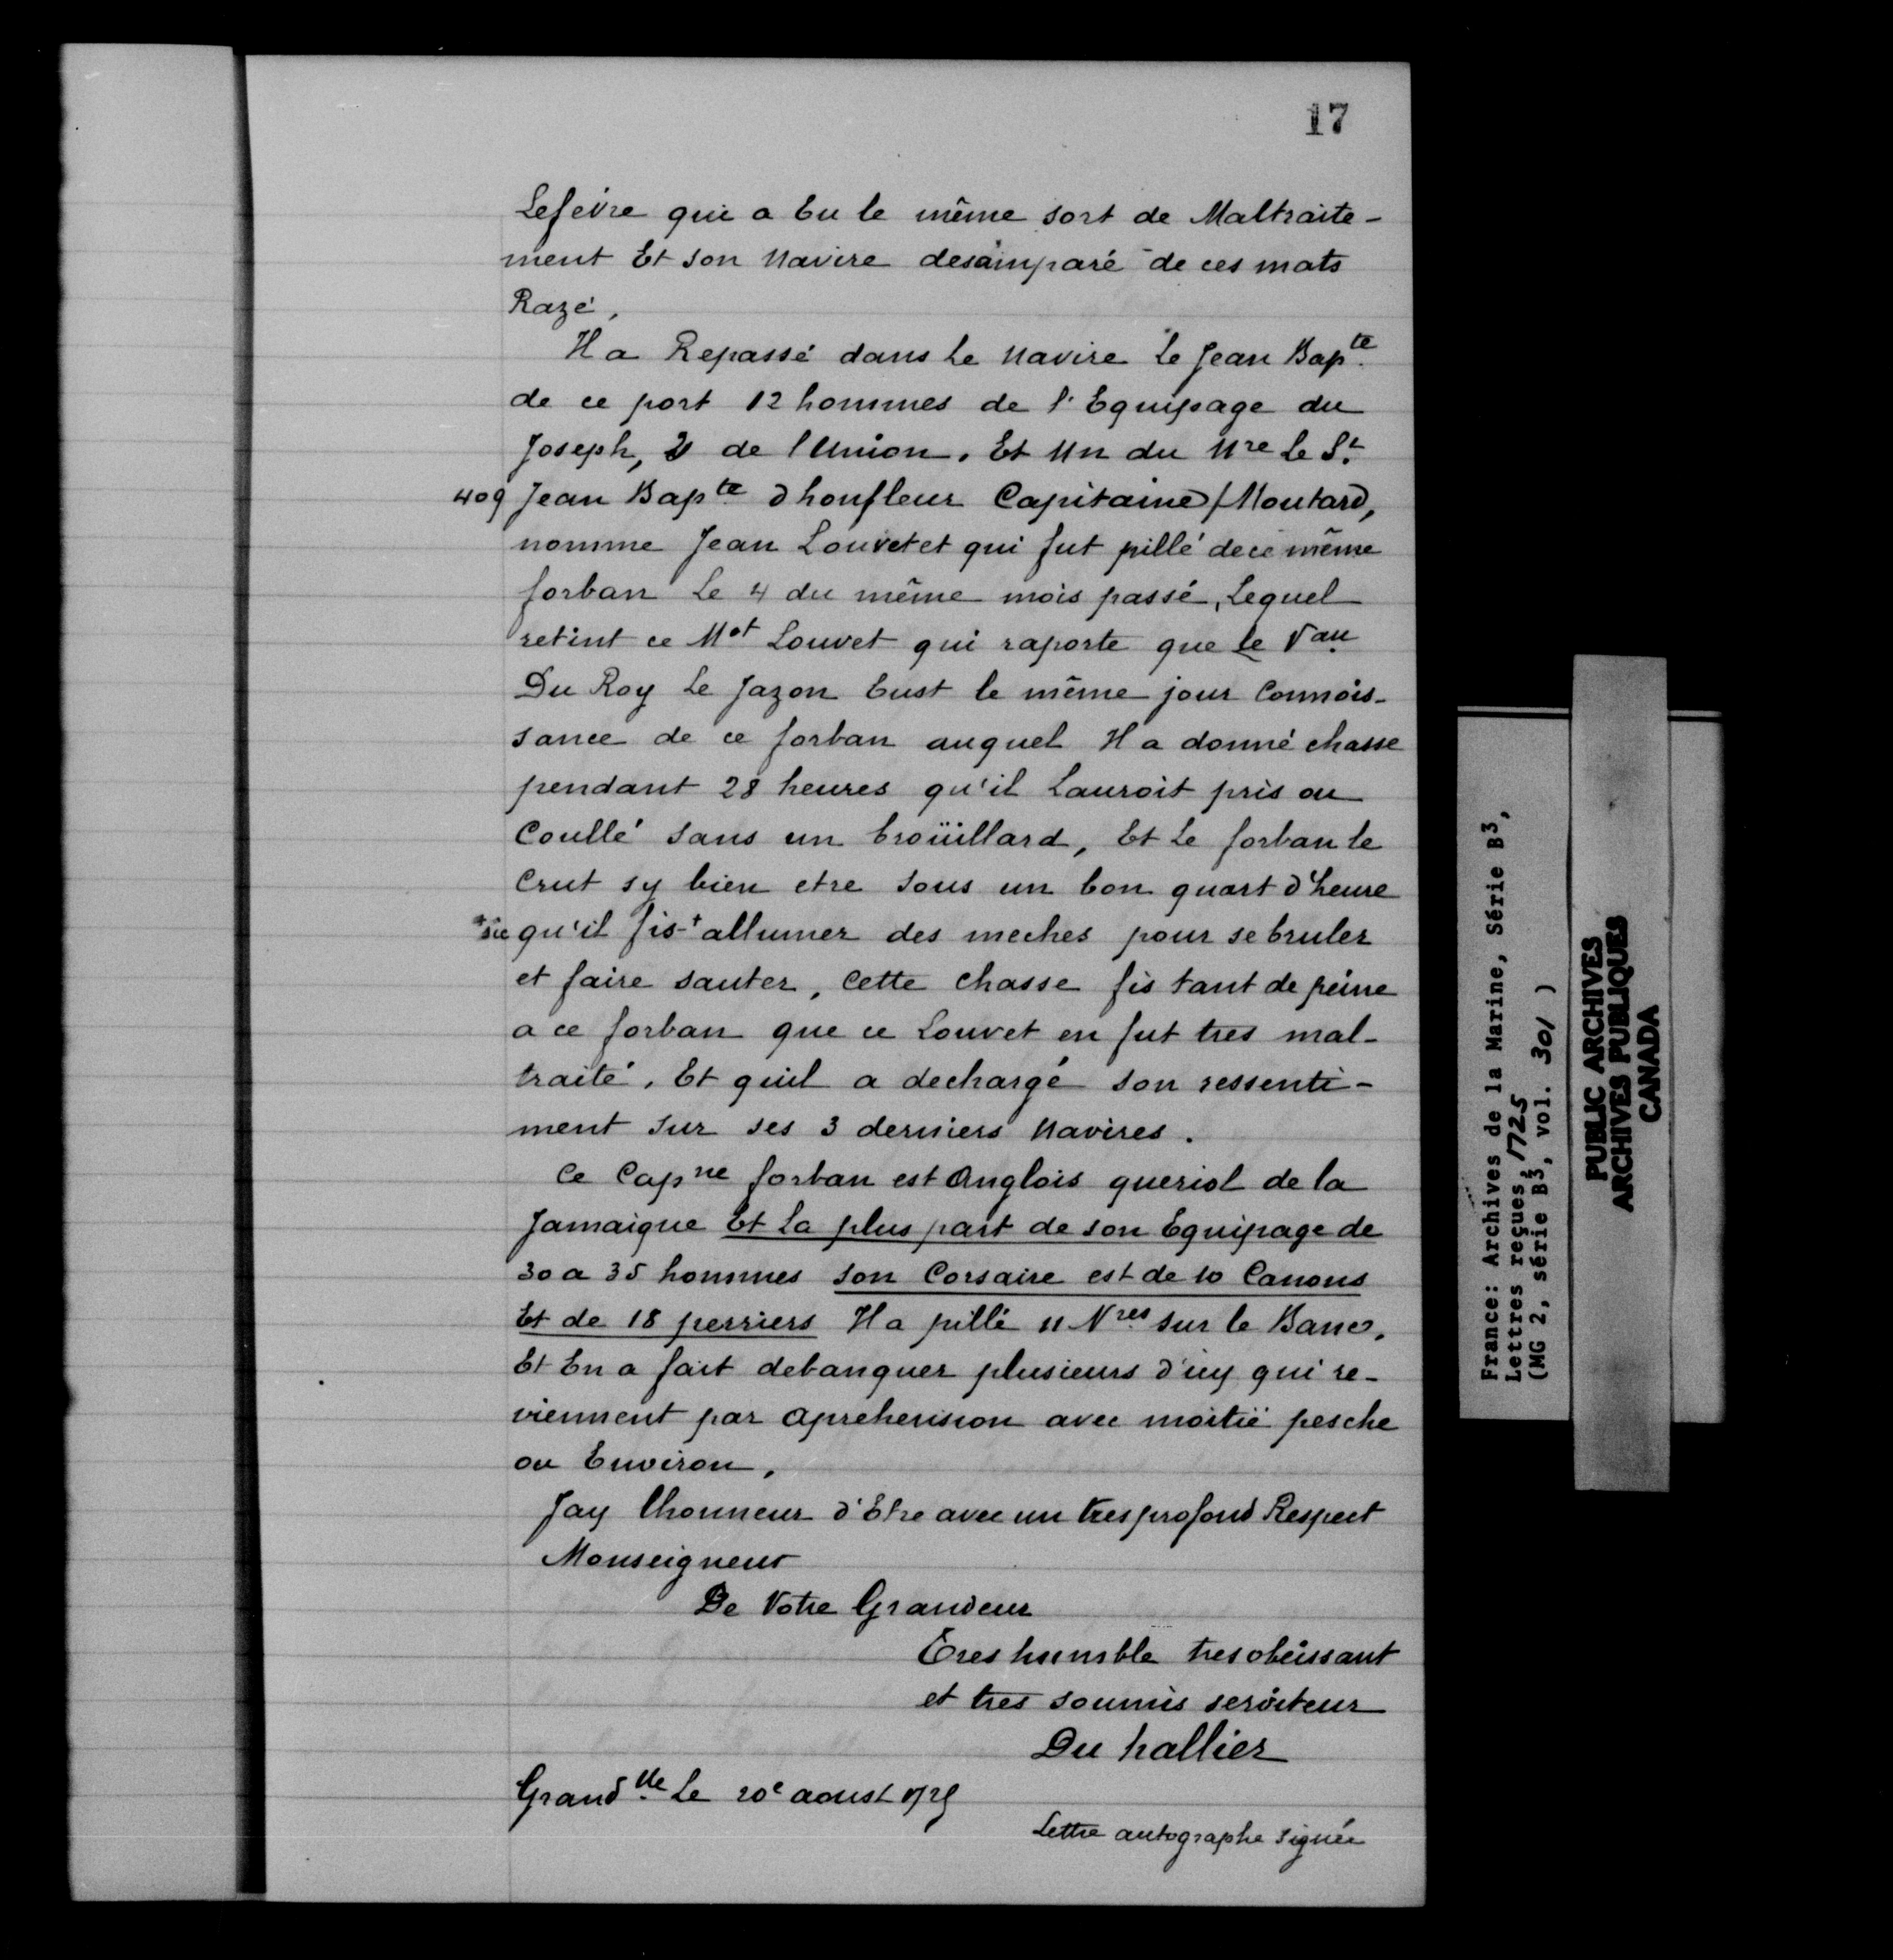 17
Lefeivre qui a Eu le même sort de Maltraite-
ment Et son Navire desamparé de ces mats
Razé,
Il a Repassé dans Le Navire Le Jean Bapte
de ce port 12 hommes de l'Equipage du
Joseph, 2 de l'Union, Et Un du Nre Le St
409 Jean Bapte dhonfleur Capitaine Moutard,
nomme Jean Louvet et qui fut pillé de ce même
forban Le 4 du même mois passé, Lequel
retint ce Mot Louvet qui raporte que le Vau
Du Roy Le Jazon Eust le même jour Connois-
sance de ce forban auquel Il a donné chasse
pendant 28 heures qu'il Lauroit pris ou
Coullé sans un broüillard, Et Le forban le
Crut sy bien etre sous un bon quart d'heure
+sic qu'il fis+ allumer des meches pour se bruler
et faire sauter, Cette chasse fis tant de peine
a ce forban que ce Louvet en fut tres mal-
traité, Et quil a dechargé son ressenti-
ment sur ses 3 derniers Navires.
Ce Capne forban est Anglois queriol de la
Jamaique Et La plus part de son Equipage de
30 a 35 hommes son Corsaire est de 10 Canons
Et de 18 perriers Il a pillé 11 Nres sur le Banc,
Et En a fait debanquer plusieurs d'icy qui re-
viennent par aprehension avec moitié pesche
ou Environ,
Jay lhonneur d'Etre avec un tres profond Respect
Monseigneur
De Votre Grandeur
Tres humble tres obeissant
et tres soumis serviteur
Du hallier
Grandlle Le 20e aoust 1725
Lettre autographe signée
France: Archives de la Marine, Série B3,
Lettres reçues, 1725
(MG 2, série B3, vol. 301 )
PUBLIC ARCHIVES
ARCHIVES PUBLIQUES
CANADA